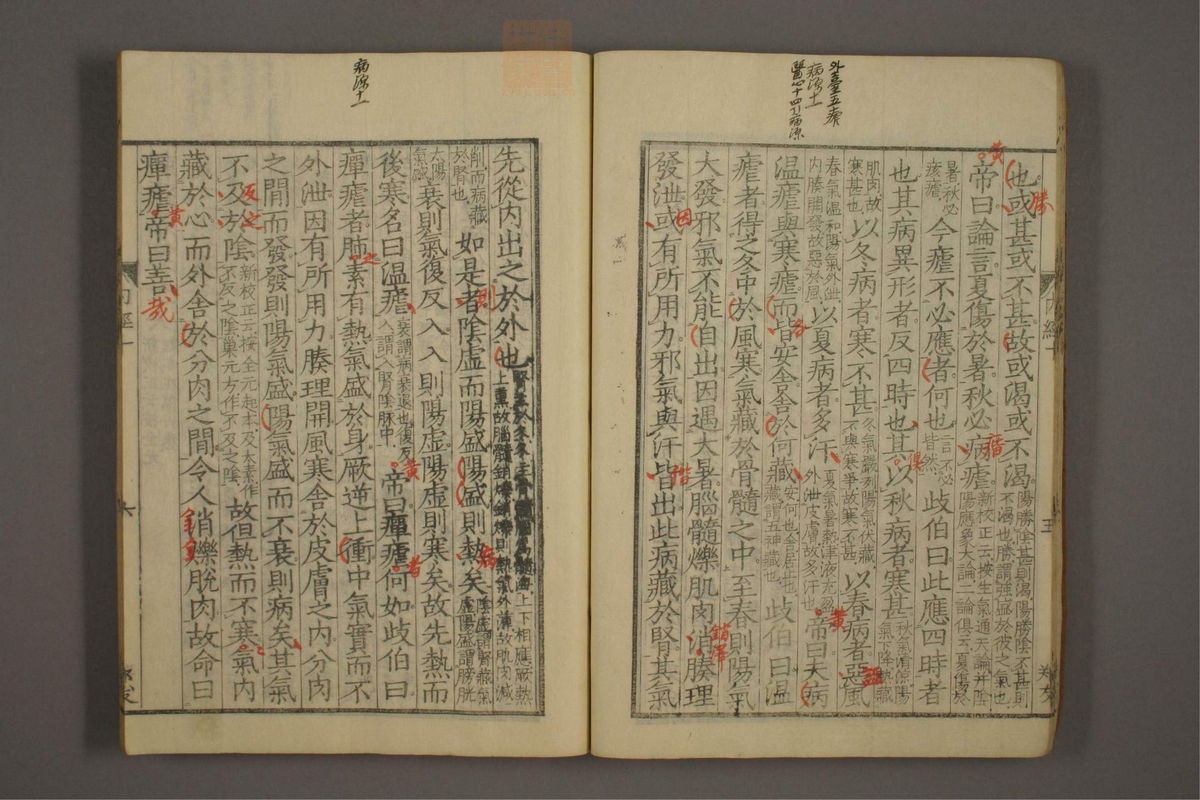 外臺五瘧
病源十一
醫心十四引病源
也或甚或不甚故或渴或不渴陽勝陰甚則渴陽勝陰不甚則不渴也勝謂強盛於彼之氣也
帝曰論言夏傷於暑秋必病瘧新校正云按生氣通天論并陰陽應象大論二論俱云夏傷於
暑秋必痎瘧今瘧不必應者何也言不必皆然歧伯曰此應四時者
也其病異形者反四時也其以秋病者寒甚秋氣清涼陽氣下降熱藏
肌肉故寒甚也以冬病者寒不甚冬氣嚴列陽氣伏藏不與寒爭故寒不甚以春病者惡風
春氣温和陽氣外泄肉腠開發故惡於風以夏病者多汗夏氣暑熱津液充盈外泄皮膚故多汗也帝曰夫病
温瘧與寒瘧而皆安舍舍於何藏安何也舍居止也藏謂五神藏也歧伯曰温
瘧者得之冬中於風寒氣藏於骨髓之中至春則陽氣
大發邪氣不能自出因遇大暑腦髓爍肌肉消腠理
發泄或有所用力邪氣與汗皆出此病藏於腎其氣
黃
勝
楷
俱
者
黃
因
楷
銷澤
内經十
五
病源十一
先從内出之於外也腎主於冬冬主骨髓腦爲髓海上下相應厥熱上熏故腦髓銷爍銷爍則熱氣外薄故肌肉減
削而病藏於腎也如是者陰虛而陽盛陽盛則熱矣陰虛謂腎藏氣虛陽盛謂膀胱
太陽氣盛衰則氣復反入入則陽虛陽虛則寒矣故先熱而
後寒名曰温瘧衰謂病衰退也復反入謂入腎陰脉中帝曰癉瘧何如歧伯曰
癉瘧者肺素有熱氣盛於身厥逆上衝中氣實而不
外泄因有所用力腠理開風寒舍於皮膚之内分肉
之間而發發則陽氣盛陽氣盛而不衰則病矣其氣
不及於陰新校正云按全元起本及太素作不反之陰巢元方作不及之陰故但熱而不寒氣内
藏於心而外舍於分肉之間令人消爍脫肉故命曰
癉瘧帝曰善
則
病
黃
者
之
反之
黃
哉
六